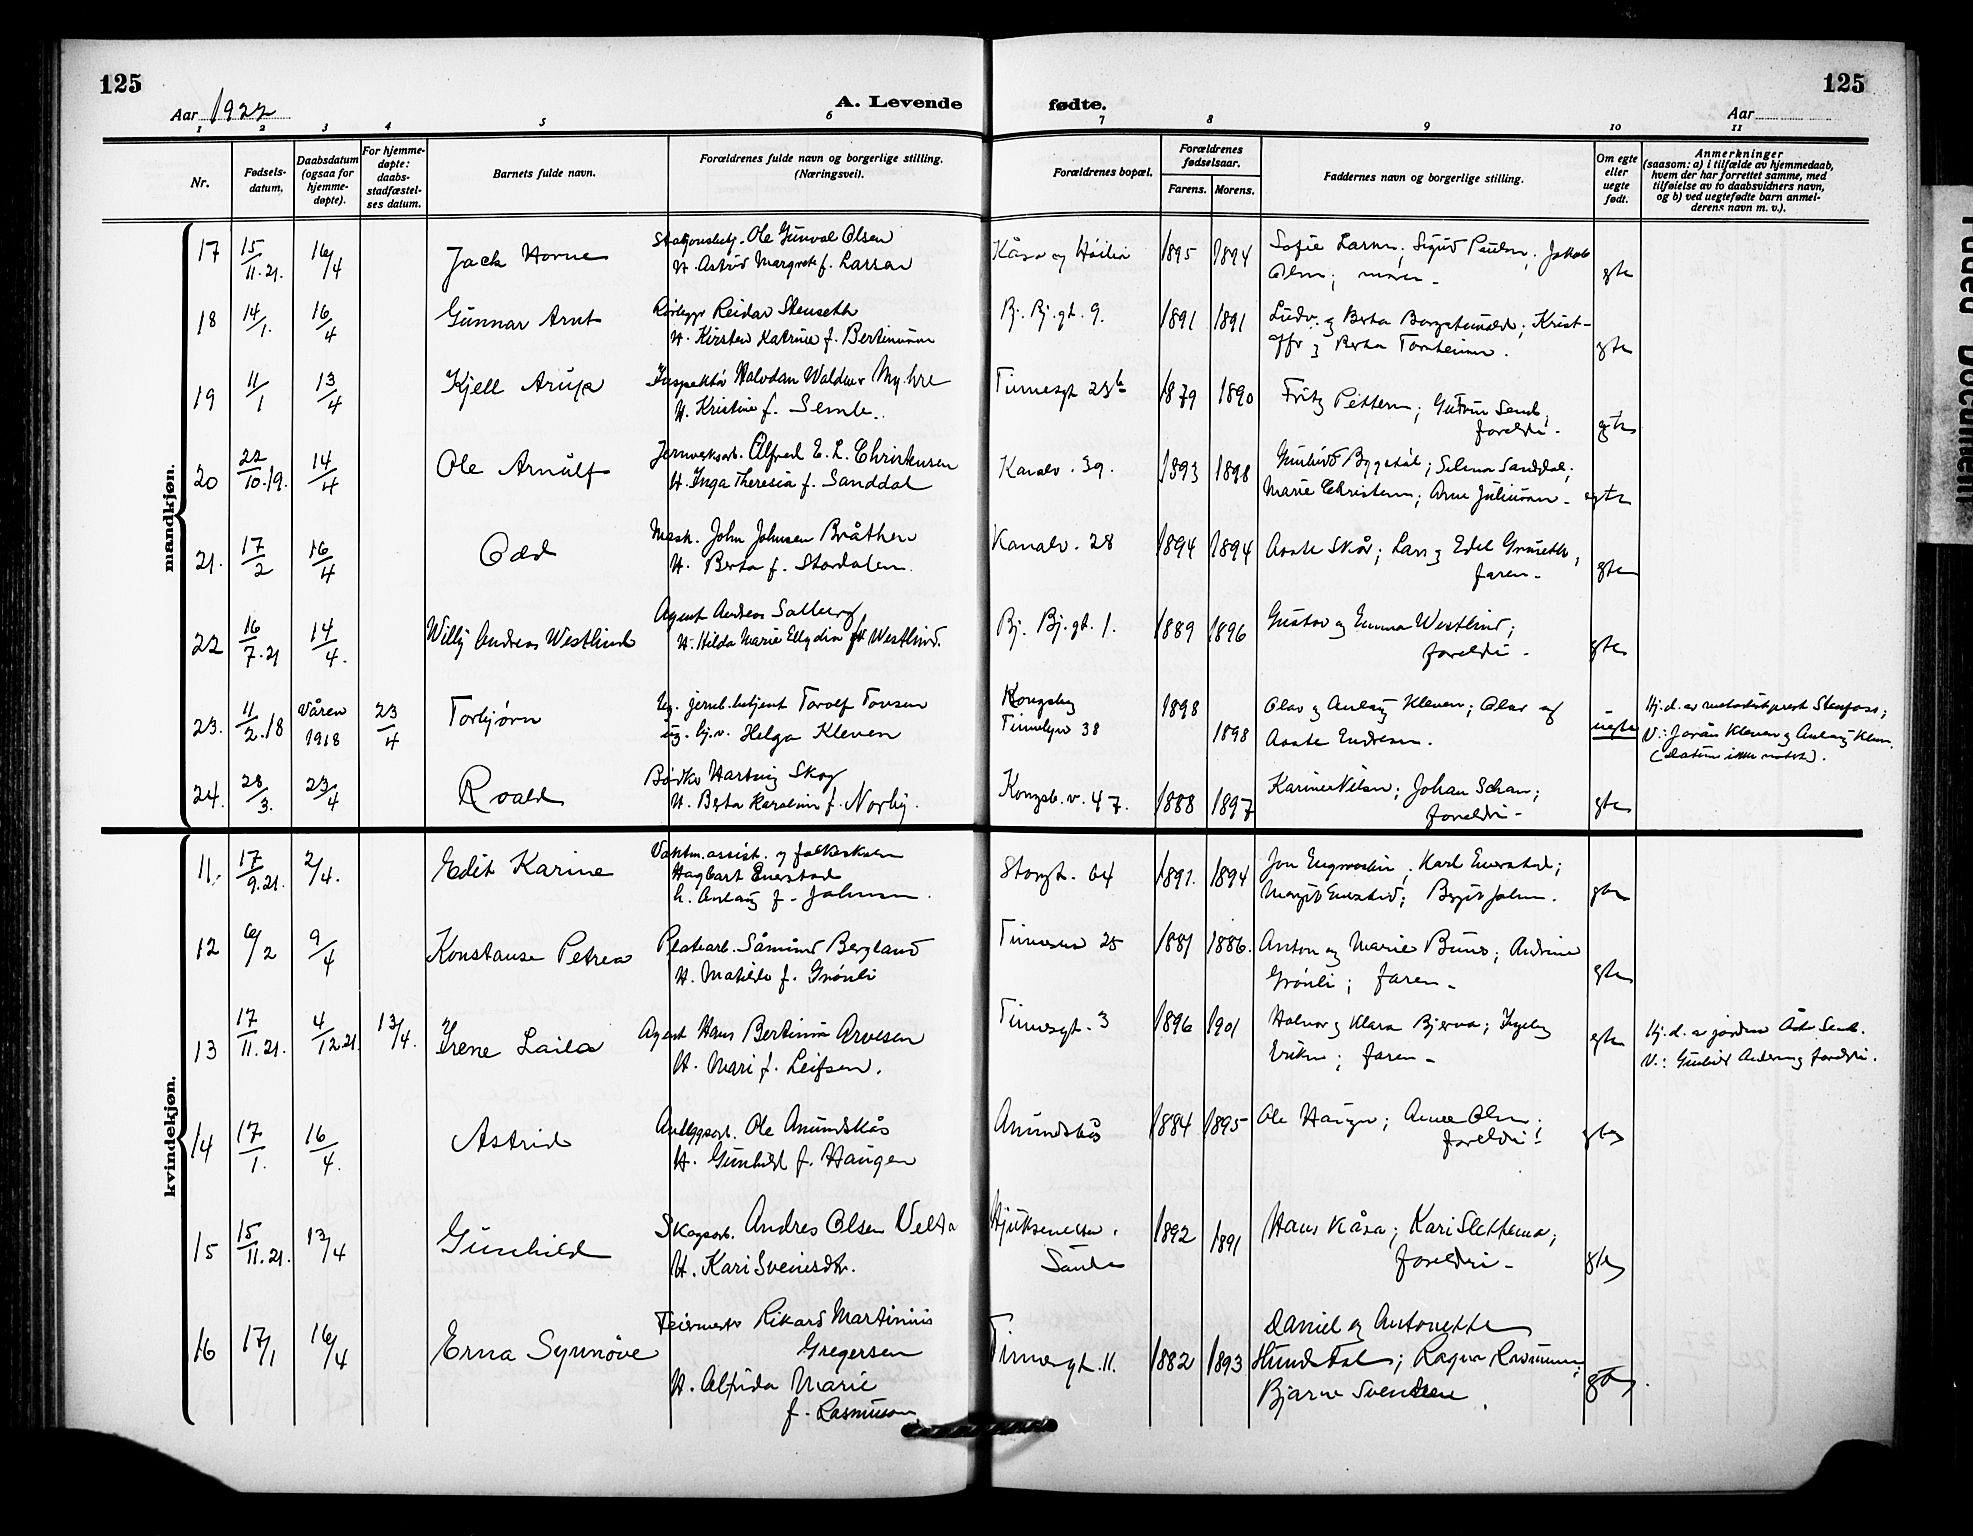 125
125
Aar 1922
A. Levende
fødte.
Aar
1 2 3 4 5 6 7 8 9 10 11
Nr.
Fødsels-
datum.
Daabsdatum
(ogsaa for
hjemme-
døpte).
For hjemme-
døpte:
daabs-
stadfæstel-
ses datum.
Barnets fulde navn.
Forældrenes fulde navn og borgerlige stilling.
(Næringsvei).
Forældrenes bopæl.
Forældrenes
fødselsaar.
Farens. Morens.
Faddernes navn og borgerlige stilling.
Om egte
eller
uegte
født.
Anmerkninger
(saasom: a) i tilfælde av hjemmedaab,
hvem der har forrettet samme, med
tilføielse av to daabsvidners navn,
og b) ved uegtefødte barn anmel-
derens navn m. v.).
mandkjøn.
17 15/11.21. 16/4 Jack Horne
Ole Gunval Olsen
H. Astrid Margrete f. Larsen
Kåsa og Høilia 1895 1894
Sofie Larsen; Sigurd Paulsen; Jakob
Olsen; moren - gte
18 14/1. 16/4 Gunnar Arnt
Rørlegger Reidar Stenseth
H. Kirsten Katrine f. Bertinussen
Bj. Bj. gt. 9. 1891 1891
Ludv. og Berta; Krist-
offer og Berta gte
19 11/1 13/4 Kjell Arup
Inspektør Halvdan Waldem. Myhre
H. Kristine f. Semb.
Tinnesgt 23b 1879 1890
Fritz Pettersen; Gudrun Semb;
foreldri. gte
20 22/10.19. 14/4 Ole Arnulf
Jernverksarb. Alfred E. L. Christensen
H. Inga Theresia f. Sanddal
Kanalv. 39. 1893 1898
Gunhild Bygstøl; Selma Sanddal;
Marie Christensen; Arne Juliussen - egte
21. 17/2 16/4 Odd
Mask. John Johnsen Bråthen
H. Berta f. Stordalen.
Kanalv. 28 1894 1894
Aaste Skår; Lars og Edel;
faren - gte
22 16/7.21 14/4. Willy Andreas Westlind
Agent Andreas Solberg
H. Hilda Marie Elly dia f. Westlind.
Bj. Bj. gt. 1. 1889 1896
Gustav og Emma Westlind;
foreldri - gte
23. 11/2.18 Våren
1918 23/4 Torbjørn
Ug. jernb.betjent Torolf Tovsen
ug. tj.v. Helga Kleven
Kongsberg
Tinnebyn 38 1898
1898
Olav og Anlaug Kleven; Olav og
Aaste Endresen. uegte
Hj. d. av metodistprest Stenfoss;
V.: Jorån Kleven og Anlaug Kleven.
(datum ikke notert).
24. 28/3. 23/4 Roald
Bødker Hartvig Skog
H. Berta Karoline f. Norby.
Kongsb. v. 47. 1888 1897
Karine Nilsen; Johan Schau;
foreldri - gte
kvindekjøn.
11. 17/9.21. 2/4. Edit Karine
Vaktm.assist. og
Hagbart Enerstad
h. Anlaug f. Johnsen.
Storgt. 64 1891. 1894
Jon; Karl Enerstad;
Margit Enerstad; Birgit Johnsen. gte
12 6/2 9/4 Konstanse Petrea
Platearb. Såmund Bergland
H. Matilde f. Grønli
Tinnesen 25 1881 1886.
Anton og Marie Buns; Andrine
Grønli; faren - gte
13 17/11.21. 4/12.21. 13/4. Irene Laila
Agent Hans Bertinius Arvesen
H. Mari f. Leifsen.
Tinnesgt. 3 1896 1901
Halvor og Klara Bjerva; Ingeborg
Eriksen; faren - egte
Hj. d. av jordmor Åste Semb.
V.: Gunhild Andersen og foreldri.
14 17/1. 16/4. Astrid
Anleggsarb. Ole Anundskås
H. Gunhild f. Haugen
Anundskås 1884 1895
Ole Haugen; Anne Olsen;
foreldri - gte
15 15/11.21. 13/4 Gunhild
Skogsarb. Andres Olsen Velta
H. Kari Sveinsdtr.
Hjuksevelta.
Sauland 1892 1891
Hans Kåsa; Kari Slettemo;
foreldri - gte
16 17/1 16/4 Erna Synnøve
Feiermestr Rikard Martinius
Gregersen
H. Alfrida Marie
f. Rasmussen
Tinnesgt. 11. 1882 1893
Daniel og Antonette
Hundstad; Ragna Rasmussen;
Bjarne Svendsen. gte.